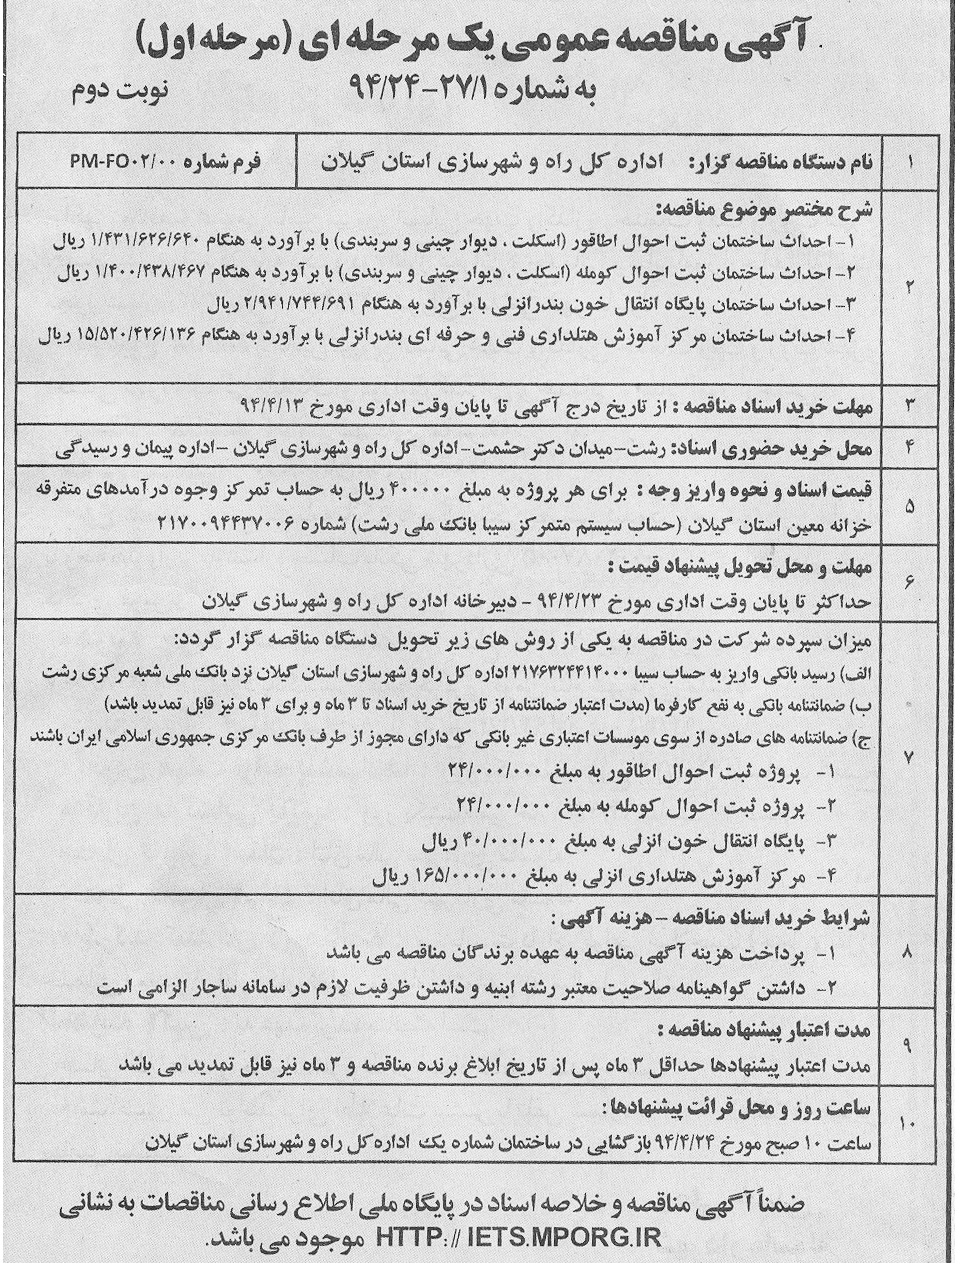 آگهی مناقصه عمومی یک مرحله ای (مرحله اول)
به شماره ۲۷/۱-۹۴/۲۴
نوبت دوم
۱
نام دستگاه مناقصه گزار: اداره کل راه و شهرسازی استان گیلان
فرم شماره PM-FO۰۲/۰۰
۲
شرح مختصر موضوع مناقصه:
۱- احداث ساختمان ثبت احوال اطاقور (اسکلت ، دیوار چینی و سربندی) با برآورد به هنگام ۱/۴۳۱/۶۲۶/۶۴۰ ریال
۲- احداث ساختمان ثبت احوال کومله (اسکلت ، دیوار چینی و سربندی) با برآورد به هنگام ۱/۴۰۰/۴۳۸/۴۶۷ ریال
۳- احداث ساختمان پایگاه انتقال خون بندرانزلی با برآورد به هنگام ۲/۹۴۱/۷۴۴/۶۹۱ ریال
۴- احداث ساختمان مرکز آموزش هتلداری فنی و حرفه ای بندرانزلی با برآورد به هنگام ۱۵/۵۲۰/۴۲۶/۱۳۶ ریال
۳
مهلت خرید اسناد مناقصه : از تاریخ درج آگهی تا پایان وقت اداری مورخ ۹۴/۴/۱۳
۴
محل خرید حضوری اسناد: رشت-میدان دکتر حشمت- اداره کل راه و شهرسازی گیلان -اداره پیمان و رسیدگی
۵
قیمت اسناد و نحوه واریز وجه : برای هر پروژه به مبلغ ۴۰۰۰۰۰ ریال به حساب تمرکز وجوه درآمدهای متفرقه
خزانه معین استان گیلان (حساب سیستم متمرکز سیبا بانک ملی رشت) شماره ۲۱۷۰۰۹۴۴۳۷۰۰۶
۶
مهلت و محل تحویل پیشنهاد قیمت :
حداکثر تا پایان وقت اداری مورخ ۹۴/۴/۲۳ - دبیرخانه اداره کل راه و شهرسازی گیلان
۷
میزان سپرده شرکت در مناقصه به یکی از روش های زیر تحویل دستگاه مناقصه گزار گردد:
الف) رسید بانکی واریز به حساب سیبا ۲۱۷۶۳۲۴۴۱۴۰۰۰ اداره کل راه و شهرسازی استان گیلان نزد بانک ملی شعبه مرکزی رشت
ب) ضمانتنامه بانکی به نفع کارفرما (مدت اعتبار ضمانتنامه از تاریخ خرید اسناد تا ۳ ماه و برای ۳ ماه نیز قابل تمدید باشد)
ج) ضمانتنامه های صادره از سوی موسسات اعتباری غیر بانکی که دارای مجوز از طرف بانک مرکزی جمهوری اسلامی ایران باشند
۱- پروژه ثبت احوال اطاقور به مبلغ ۲۴/۰۰۰/۰۰۰
۲- پروژه ثبت احوال کومله به مبلغ ۲۴/۰۰۰/۰۰۰
۳- پایگاه انتقال خون انزلی به مبلغ ۴۰/۰۰۰/۰۰۰ ریال
۴- مرکز آموزش هتلداری انزلی به مبلغ ۱۶۵/۰۰۰/۰۰۰ ریال
۸
شرایط خرید اسناد مناقصه - هزینه آگهی :
۱- پرداخت هزینه آگهی مناقصه به عهده برندگان مناقصه می باشد
۲- داشتن گواهینامه صلاحیت معتبر رشته ابنیه و داشتن ظرفیت لازم در سامانه ساجار الزامی است
۹
مدت اعتبار پیشنهاد مناقصه :
مدت اعتبار پیشنهادها حداقل ۳ ماه پس از تاریخ ابلاغ برنده مناقصه و ۳ ماه نیز قابل تمدید می باشد
۱۰
ساعت روز و محل قرائت پیشنهادها:
ساعت ۱۰ صبح مورخ ۹۴/۴/۲۴ بازگشایی در ساختمان شماره یک اداره کل راه و شهرسازی استان گیلان
ضمناً آگهی مناقصه و خلاصه اسناد در پایگاه ملی اطلاع رسانی مناقصات به نشانی
HTTP://IETS.MPORG.IR موجود می باشد.